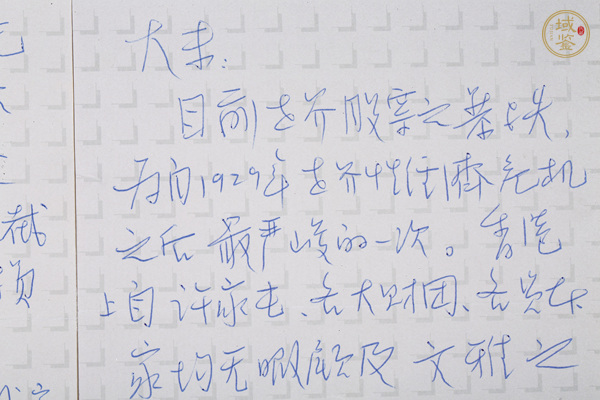 大未：
目前世界股票之暴跌，
为自1929年世界性经济危机
之后最严峻的一次。香港
上自许家屯、各大财团、各
家均无暇顾及文雅之
域鉴